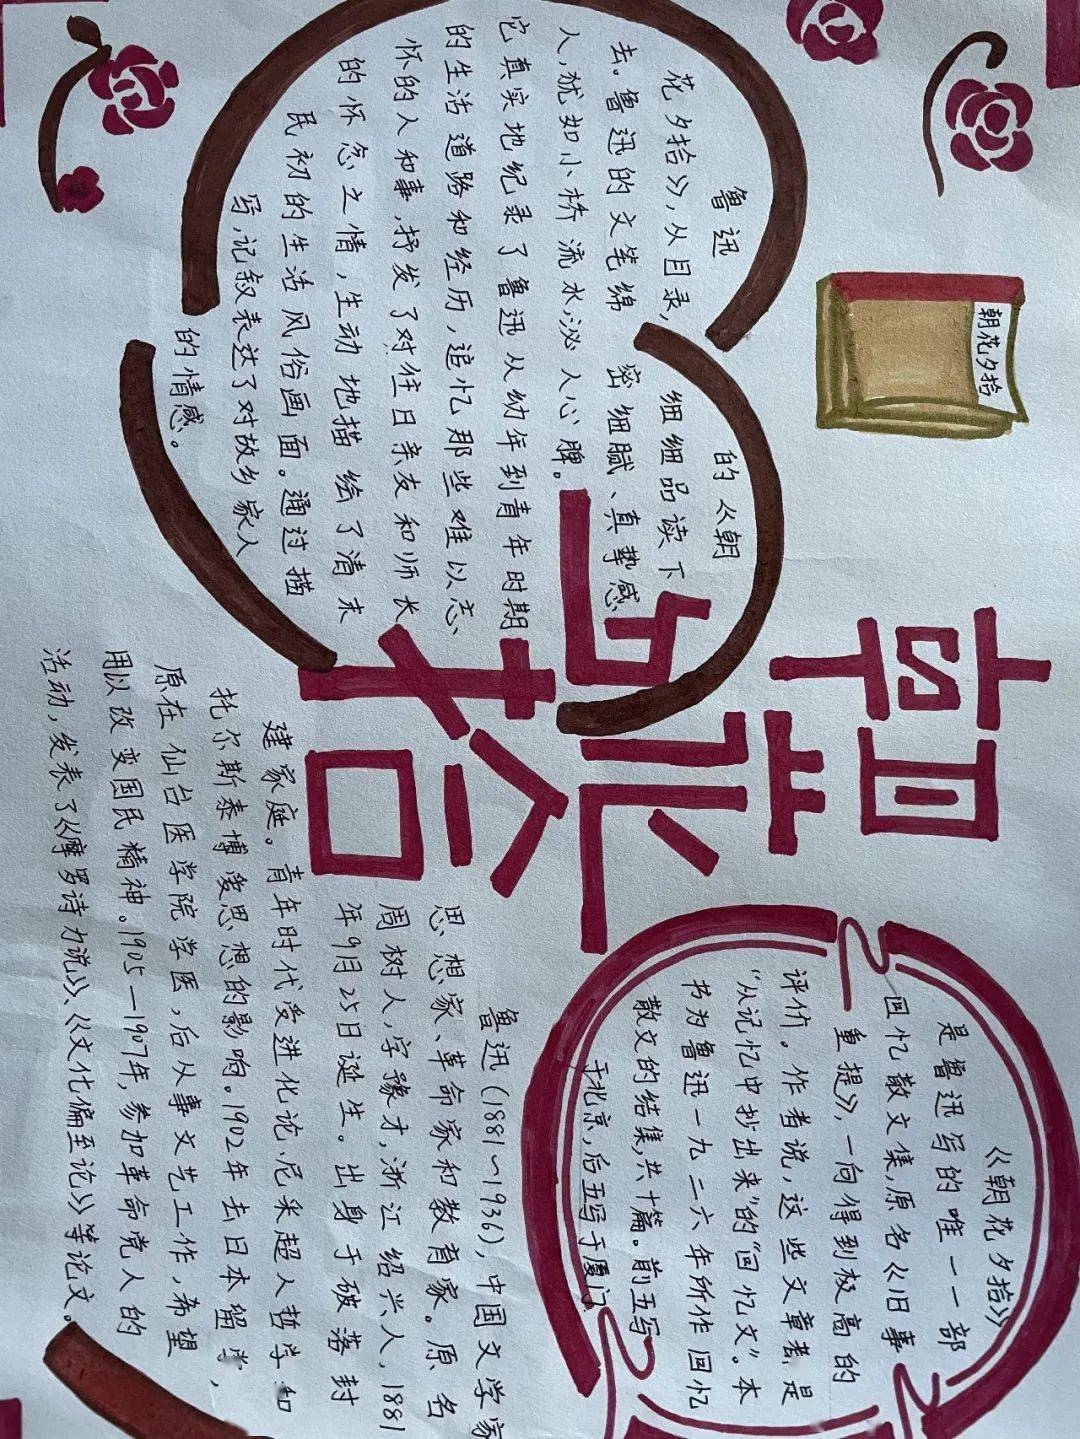 朝花夕拾
朝花夕拾
鲁迅的《朝
花夕拾》,从目录,细细品读下
去。鲁迅的文笔绵密细腻、真挚感
人,犹如小桥流水,沁人心脾。
它真实地纪录了鲁迅从幼年到青年时期
的生活道路和经历,追忆那些难以忘
怀的人和事,抒发了对往日亲友和师长
的怀念之情,生动地描绘了清末
民初的生活风俗画面。通过描
写,记叙表达了对故乡家人
的情感。
《朝花夕拾》
是鲁迅写的唯一一部
回忆散文集,原名《旧事
重提》,一向得到极高的
评价。作者说,这些文章都是
“从记忆中抄出来”的“回忆文”。本
书为鲁迅一九二六年所作回忆
散文的结集,共十篇。前五写
于北京,后五写于厦门。
鲁迅(1881~1936),中国文学家
思想家、革命家和教育家。原名
周树人,字豫才,浙江绍兴人,1881
年9月25日诞生。出身于破落封
建家庭。青年时代受进化论、尼采超人哲学和
托尔斯泰博爱思想的影响。1902年去日本留学,
原在仙台医学院学医,后从事文艺工作,希望
用以改变国民精神。1905—1907年,参加革命党人的
活动,发表了《摩罗诗力说》、《文化偏至论》等论文。